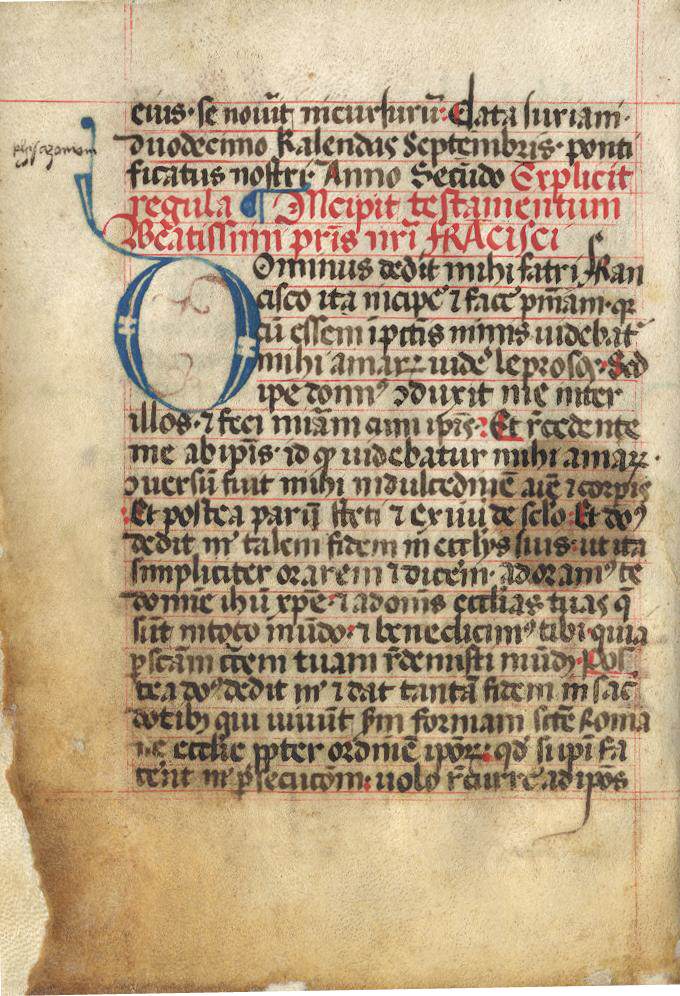 eius· se nouit incursurū· Data suriani·
duodecimo Kalendas Septembris· ponti
ficatus nostri· Anno Secūdo Explicit
regula ¶ Incipit testamentum
Beatissimi pr̄is nr̄i fRAcisci
Ominus dedit mihi fatri fRan
cisco ita incipe᷒ ⁊ face᷒ pn̄iam· qꝛ
cū essem ī pctīs nimis uidebat᷒
mihi amaꝝ uide᷒ leprosos· Sed
ipe domin᷒ ꝯduxit me inter
illos· ⁊ feci miām cum ipīs· Et r̄cedente
me ab ipīs· id qꝫ uidebatur mihi amaꝝ·
ꝯuersū fuit mihi in dulcedinē aīe ⁊ corpis
Et postea parū steti ⁊ exiui de sclo· Et do᷒
dedit m̄ talem fidem in ecclijs suis· ut ita
simpliciter orarem ⁊ dicerem· adoram᷒ te
domīe ihū xp̄e· ⁊ ad omīs ecclias tuas q̄
sūt in toto mūdo· ⁊ benedicim᷒ tibi· quia
ꝑ scām cr̄cem tuam r̄demisti mūdū Pos
tea do᷒ dedit m̄ ⁊ dat tantā fidem in sac̄
dotibꝫ qui uiuūt sm formam scē Roma
ne ecclie ꝓpter ordinē ipoꝝ· qd̓ si m̄ fa
cent m̄ ꝑsecucōm· uolo r̄curre᷒ ad ipos